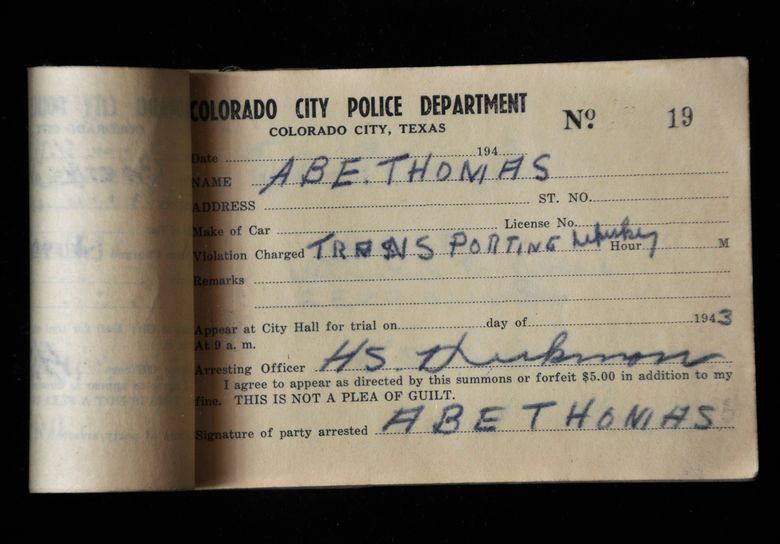 COLORADO CITY POLICE DEPARTMENT
COLORADO CITY, TEXAS
Nº 19
Date 194
NAME ABE. THOMAS
ADDRESS ST. NO.
Make of Car License No.
Violation Charged TRANSPORTING Whiskey Hour M
Remarks
Appear at City Hall for trial on day of 1943
At 9 a. m.
Arresting Officer HS.
I agree to appear as directed by this summons or forfeit $5.00 in addition to my
fine. THIS IS NOT A PLEA OF GUILT.
Signature of party arrested ABE THOMAS